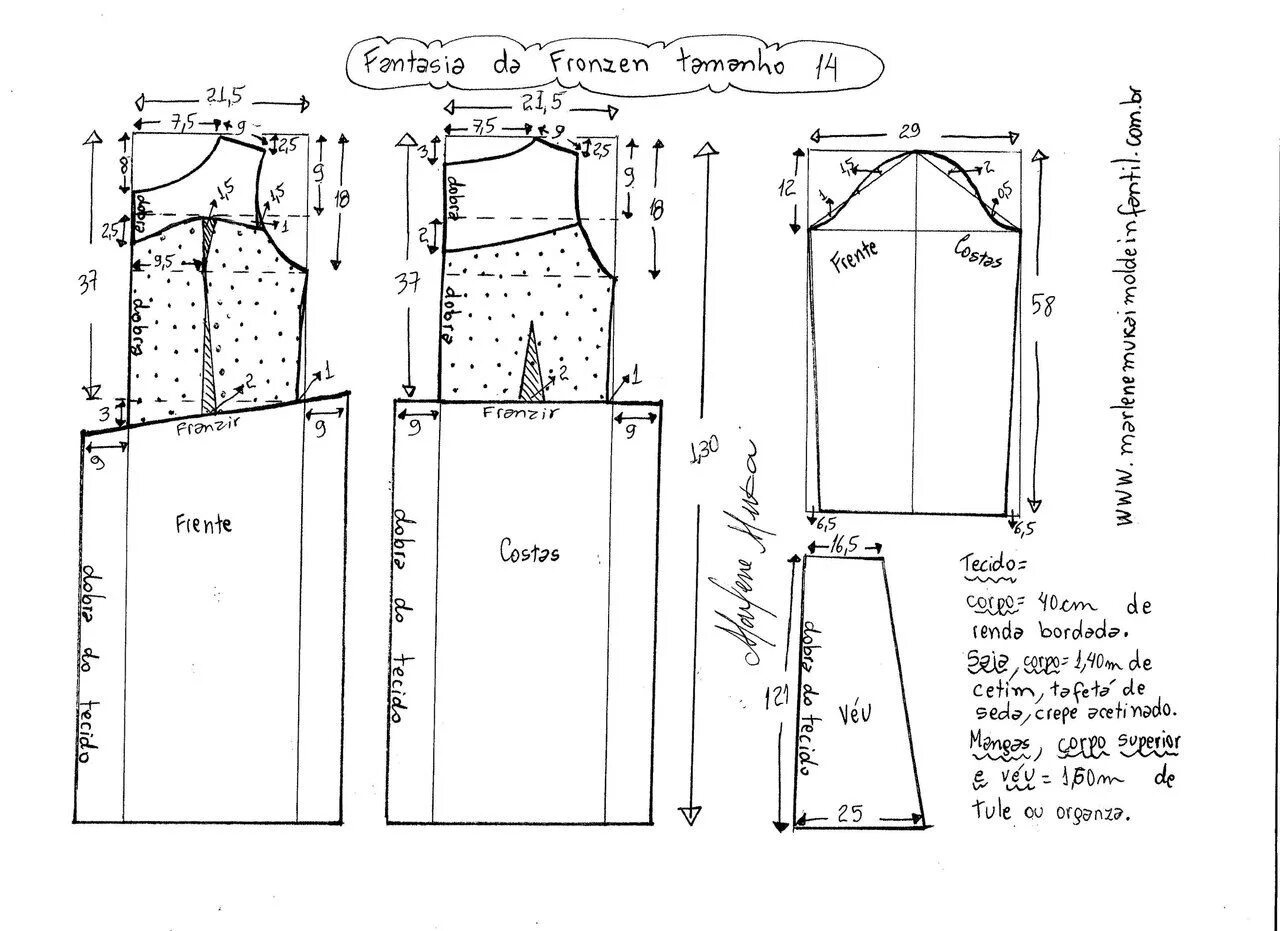 Fantasia da Fronzen tamanho 14
21,5
7,5
9
2,5
8
9
18
dobra
1,5
1,5
1
2,5
9,5
37
dobra
2
1
3
Franzir
9
9
Frente
dobra do tecido
21,5
7,5
9
2,5
3
9
18
dobra
2
37
dobra
2
1
Franzir
9
9
Costas
dobra do tecido
1,30
29
12
1,5
2
1
0,5
Frente
Costas
58
6,5
6,5
16,5
121
dobra do tecido
Véu
25
www.marlenemukaimoldeinfantil.com.br
Tecido=
corpo= 40cm de
renda bordada.
Saia, corpo= 1,40m de
cetim, tafetá de
seda, crepe acetinado.
Mangas, corpo superior
e véu = 1,60m de
tule ou organza.